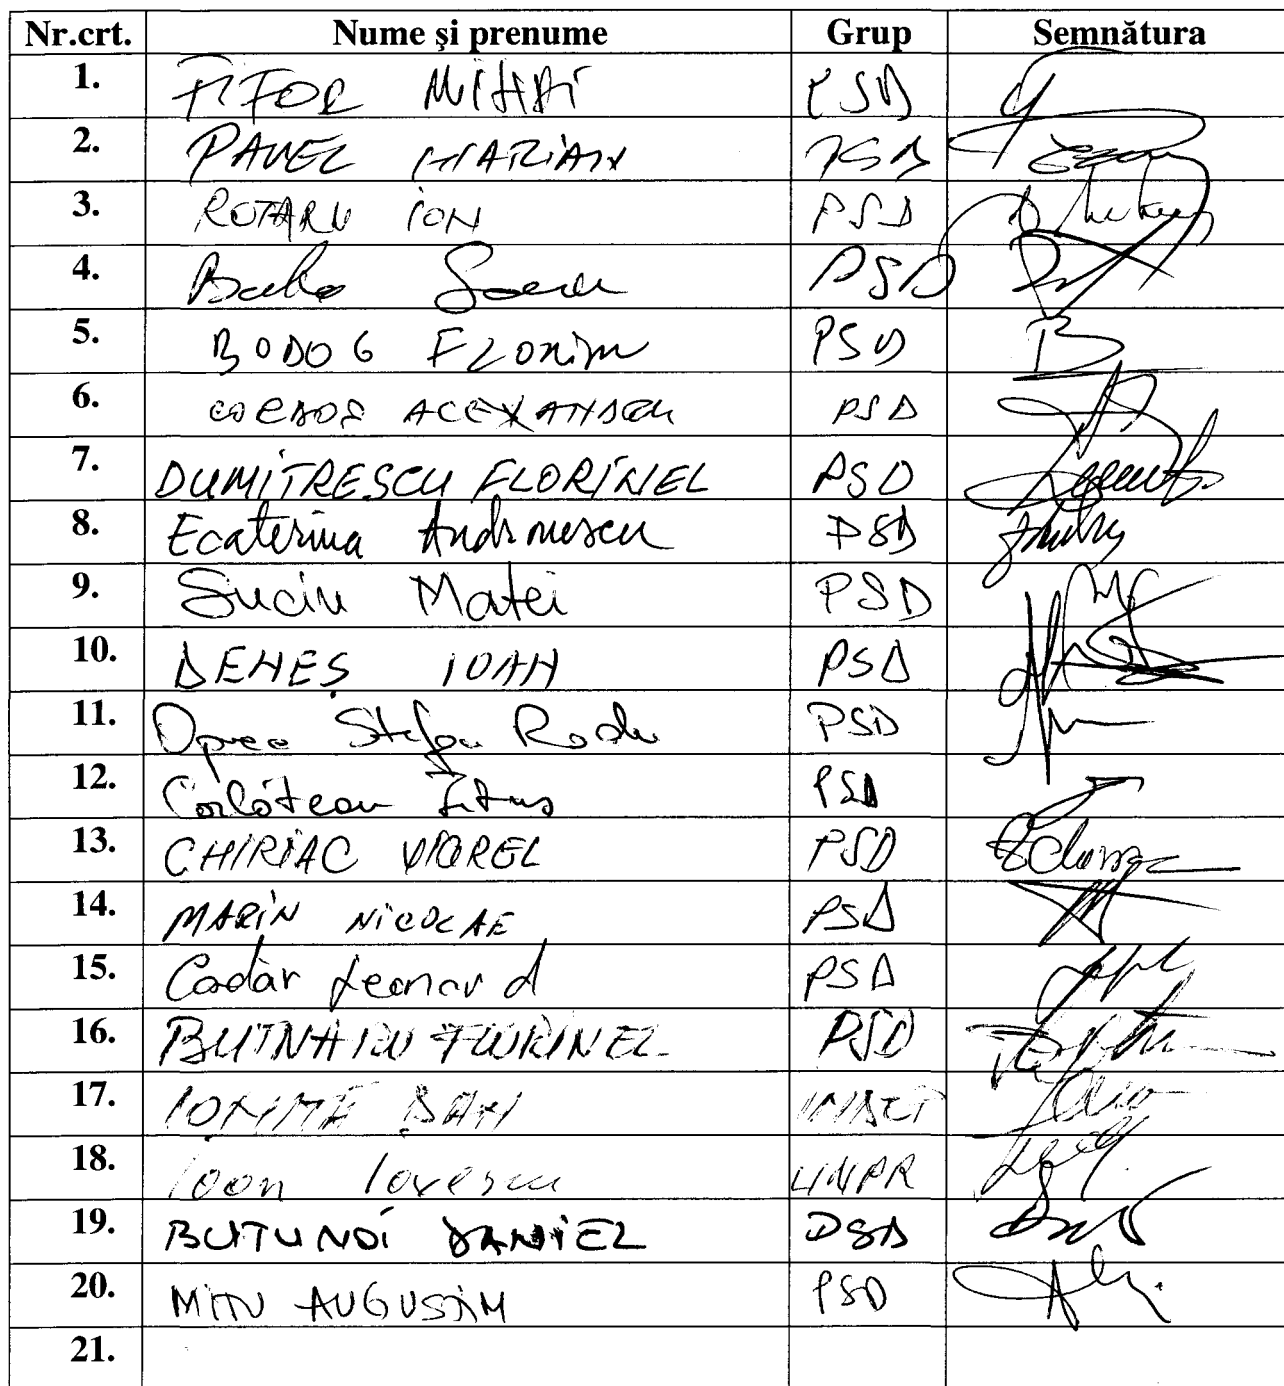 Nr.crt. Nume și prenume Grup Semnătura
1. FIFOR MIHAI PSD
2. PAVEL MARIAN PSD
3. ROTARU ION PSD
4. PSD
5. BODOG FLORIN PSD
6. CORDOȘ ALEXANDRU PSD
7. DUMITRESCU FLORINEL PSD
8. Ecaterina Andronescu PSD
9. Suciu Matei PSD
10. DENEȘ IOAN PSD
11. Oprea Ștefan Radu PSD
12. Corlățean Titus PSD
13. CHIRIAC VIOREL PSD
14. MARIN NICOLAE PSD
15. Cadăr Leonard PSD
16. BUTNARU FLORINEL PSD
17. IONIȚĂ DAN
18. Ioan Iovescu UNPR
19. BUTUNOI DANIEL PSD
20. MITU AUGUSTIN PSD
21.